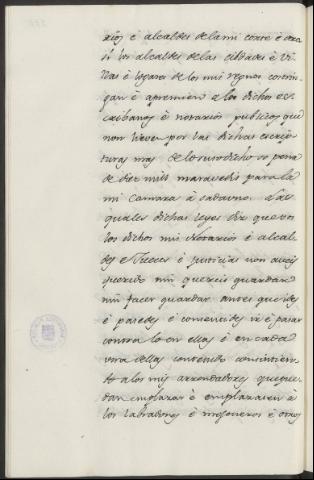 rios é alcaldes de la mi corte é otro
si los alcaldes de las cibdades é vi
llas é logares de los mis regnos costrin
gan é apremien á los dichos es
cribanos é notarios publicos que
non lieven por las dichas escrip
turas mas de lo susodicho so pena
de diez mill maravedis para la
mi camara à cadauno. Las
quales dichas leyes diz que vos
los dichos mis Notarios é alcal
des é Jueces é justicias non aveis
querido nin quereis guardar
nin facer guardar antes que ides
é pasedes é consentides ir é pasar
contra lo en ellas é en cada
una dellas contenido consintien
do a los mis arrendadores que pue
dan emplazar é emplazasen à
los labradores é mesoneros é otros